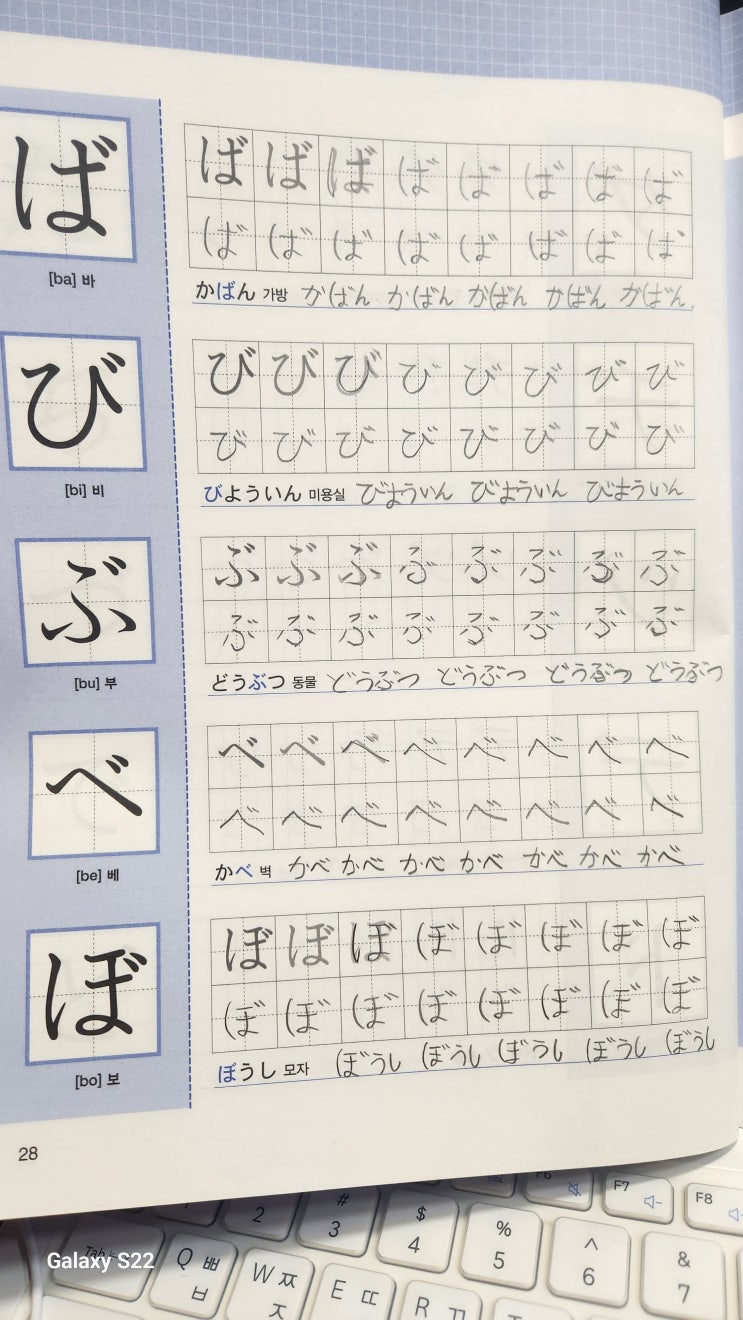 ば ば ば ば ば ば ば ば ば
ば ば ば ば ば ば ば ば
[ba] 바
かばん 가방 かばん かばん かばん かばん かばん
び び び び び び び び び
び び び び び び び び
[bi] 비
びよういん 미용실 びよういん びよういん びよういん
ぶ ぶ ぶ ぶ ぶ ぶ ぶ ぶ ぶ
ぶ ぶ ぶ ぶ ぶ ぶ ぶ ぶ
[bu] 부
どうぶつ 동물 どうぶつ どうぶつ どうぶつ どうぶつ
べ べ べ べ べ べ べ べ べ
べ べ べ べ べ べ べ べ
[be] 베
かべ 벽 かべ かべ かべ かべ かべ かべ かべ
ぼ ぼ ぼ ぼ ぼ ぼ ぼ ぼ ぼ
ぼ ぼ ぼ ぼ ぼ ぼ ぼ ぼ
[bo] 보
ぼうし 모자 ぼうし ぼうし ぼうし ぼうし ぼうし
28
F6 F7 F8
2 # 3 $ 4 % 5 ^ 6 & 7
Tab Q ㅃ ㅂ W ㅉ ㅈ E ㄸ R ㄲ
Galaxy S22